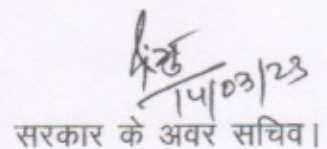 14/03/23
सरकार के अवर सचिव।